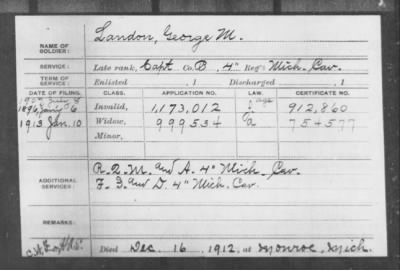 NAME OF SOLDIER: Landon, George M.
SERVICE: Late rank, Capt. Co. B, 4" Reg't Mich. Cav.
TERM OF SERVICE: Enlisted , 1 Discharged , 1
DATE OF FILING. CLASS. APPLICATION NO. LAW. CERTIFICATE NO.
Invalid, 1,173,012 age 912,860
1913 Jan. 10 Widow, 999534 754577
Minor,
ADDITIONAL SERVICES: R.Q.M. and A. 4" Mich. Cav.
F. I. and D. 4" Mich. Cav.
REMARKS:
Died Dec. 16, 1912, at Monroe, Mich.